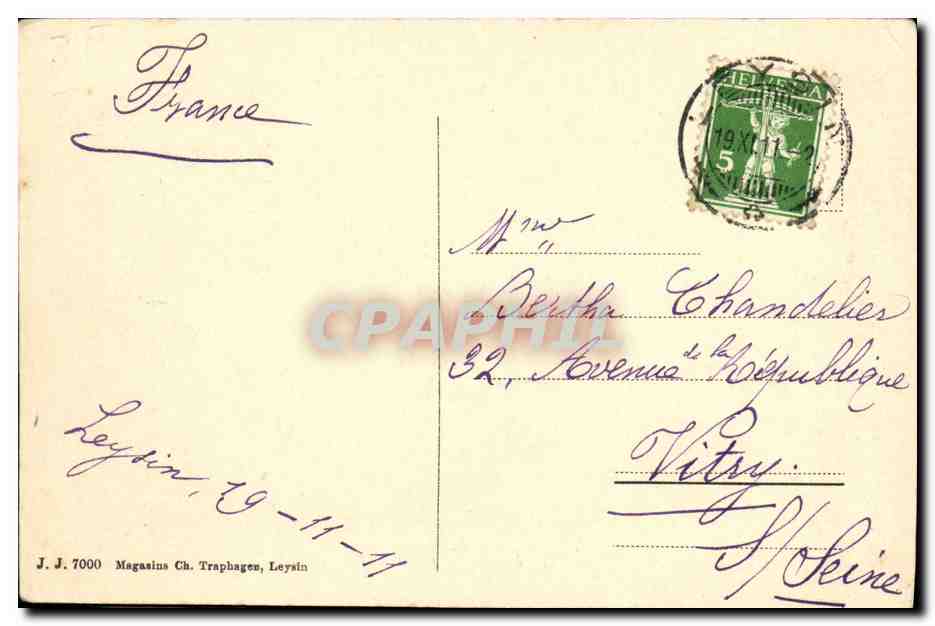 France
HELVETIA
LEYSIN
19 XI 11
5
Mme
Bertha Chandelier
32, Avenue de la République
Vitry.
S/Seine
Leysin, 19-11-11
J. J. 7000 Magasins Ch. Traphagen, Leysin
CPAPHIL